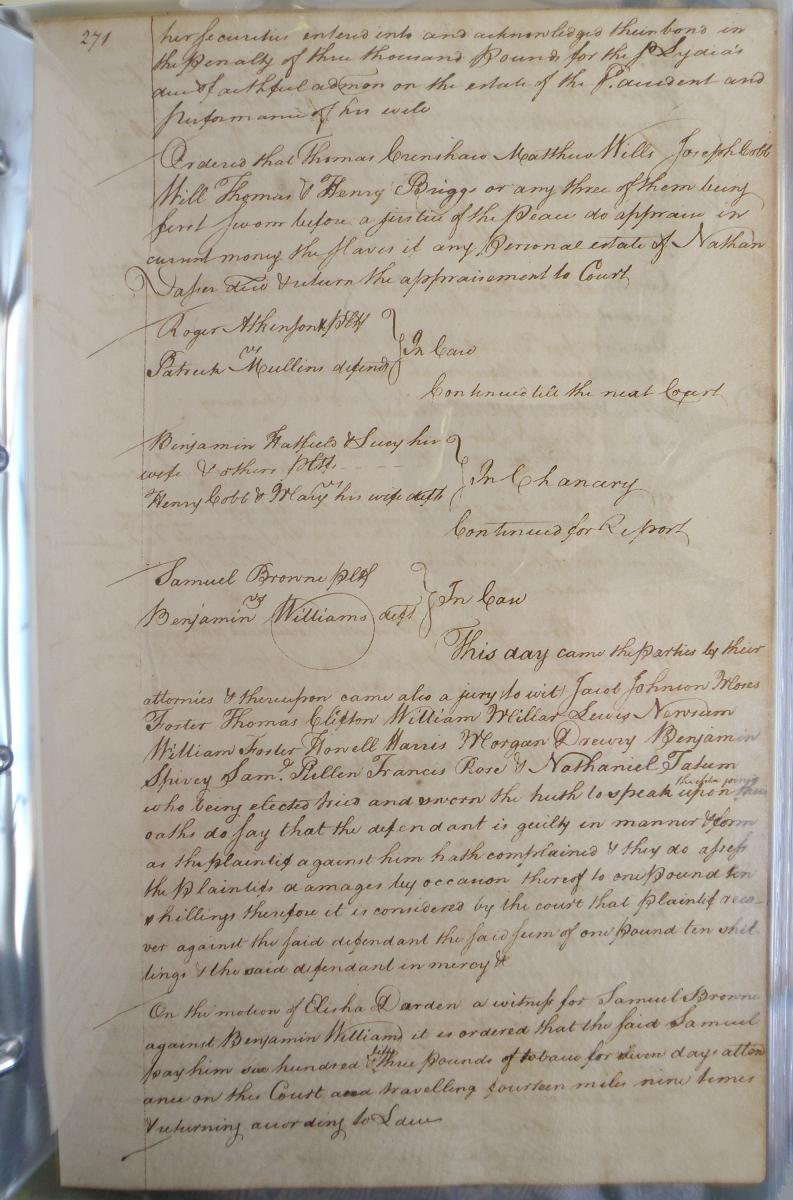 271
her securities entered into and acknowledged their bond in
the penalty of three thousand Pounds for the sd Lydia's
due & faithful admon on the estate of the sd decedent and
performance of his will
Ordered that Thomas Crenshaw Matthew Wills Joseph Cobb
Will Thomas & Henry Briggs or any three of them being
first sworn before a justice of the peace do appraise in
current money the slaves if any Personal estate of Nathan
Vasser decd & return the appraisement to Court
Roger Atkinson pltf
vs
Patrick Mullins defend
In Case
Continued till the next Court
Benjamin Hatfield & Lucy his
wife & others pltfs
vs
Henry Cobb & Mary his wife defts
In Chancery
Continued for Report
Samuel Browne pltf
vs
Benjamin Williams deft
In Case
This day came the parties by their
attornies & thereupon came also a jury to wit Jacob Johnson Moses
Foster Thomas Clifton William Millar Lewis Newsum
William Foster Howell Harris Morgan Drewry Benjamin
Spivey Saml Pullen Francis Rose & Nathaniel Tatum
who being elected tried and sworn the truth to speak upon their
oaths do say that the defendant is guilty in manner & form
as the plaintif against him hath complained & they do assess
the plaintifs damages by occasion thereof to one pound ten
shillings therefore it is considered by the court that plaintif reco-
ver against the said defendant the said sum of one pound ten shil-
lings & the said defendant in mercy &
On the motion of Elisha Darden a witness for Samuel Browne
against Benjamin Williams it is ordered that the said Samuel
pay him six hundred & fifty three pounds of tobaco for seven days atten
ance on this Court and travelling fourteen miles nine times
& returning according to Law